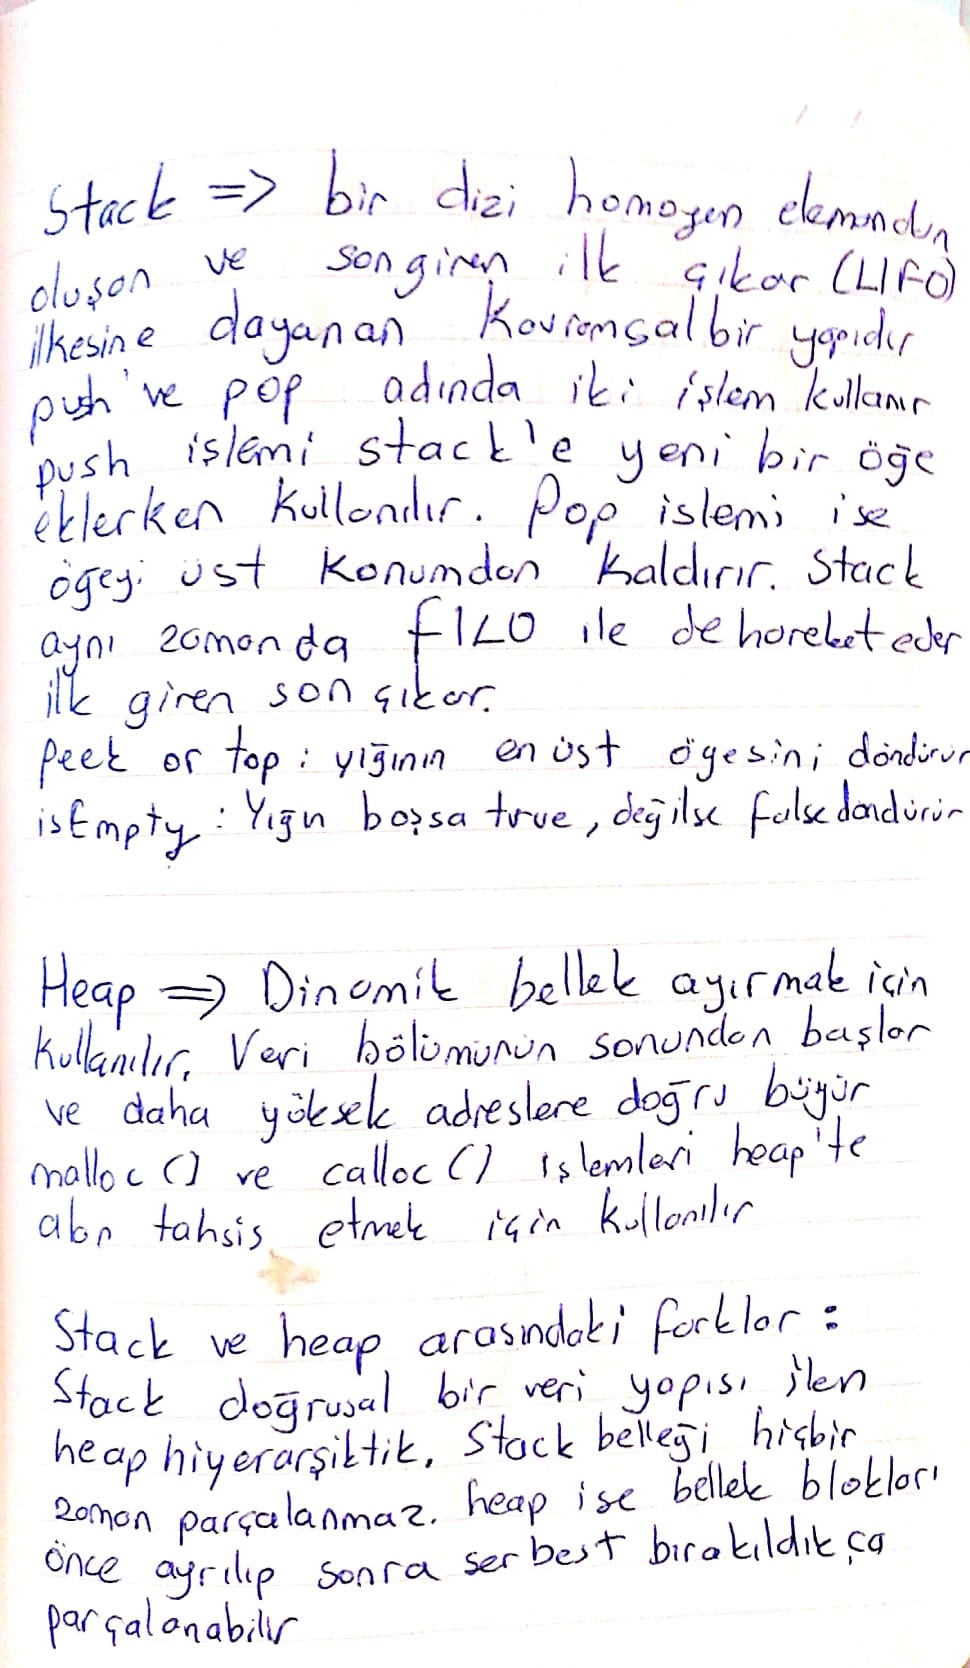 Stack => bir dizi homogen elemandan
oluşan ve son giren ilk çıkar (LIFO)
ilkesine dayanan Kavramsal bir yapıdır
push ve pop adında iki işlem kullanır
push işlemi stack'e yeni bir öğe
eklerken kullanılır. Pop islemi ise
öğeyi üst konumdan kaldırır. Stack
aynı zamanda FILO ile de hareket eder
ilk giren son çıkar.
Peek or top : yığının en üst öğesini döndürür
isEmpty : Yığın boşsa true, değilse false döndürür
Heap => Dinamik bellek ayırmak için
kullanılır. Veri bölümünün sonundan başlar
ve daha yüksek adreslere doğru büyür
malloc () ve calloc () işlemleri heap'te
alan tahsis etmek için kullanılır
Stack ve heap arasındaki farklar :
Stack doğrusal bir veri yapısı iken
heap hiyerarşiktik. Stack belleği hiçbir
zaman parçalanmaz. heap ise bellek blokları
önce ayrılıp sonra serbest bırakıldıkça
parçalanabilir